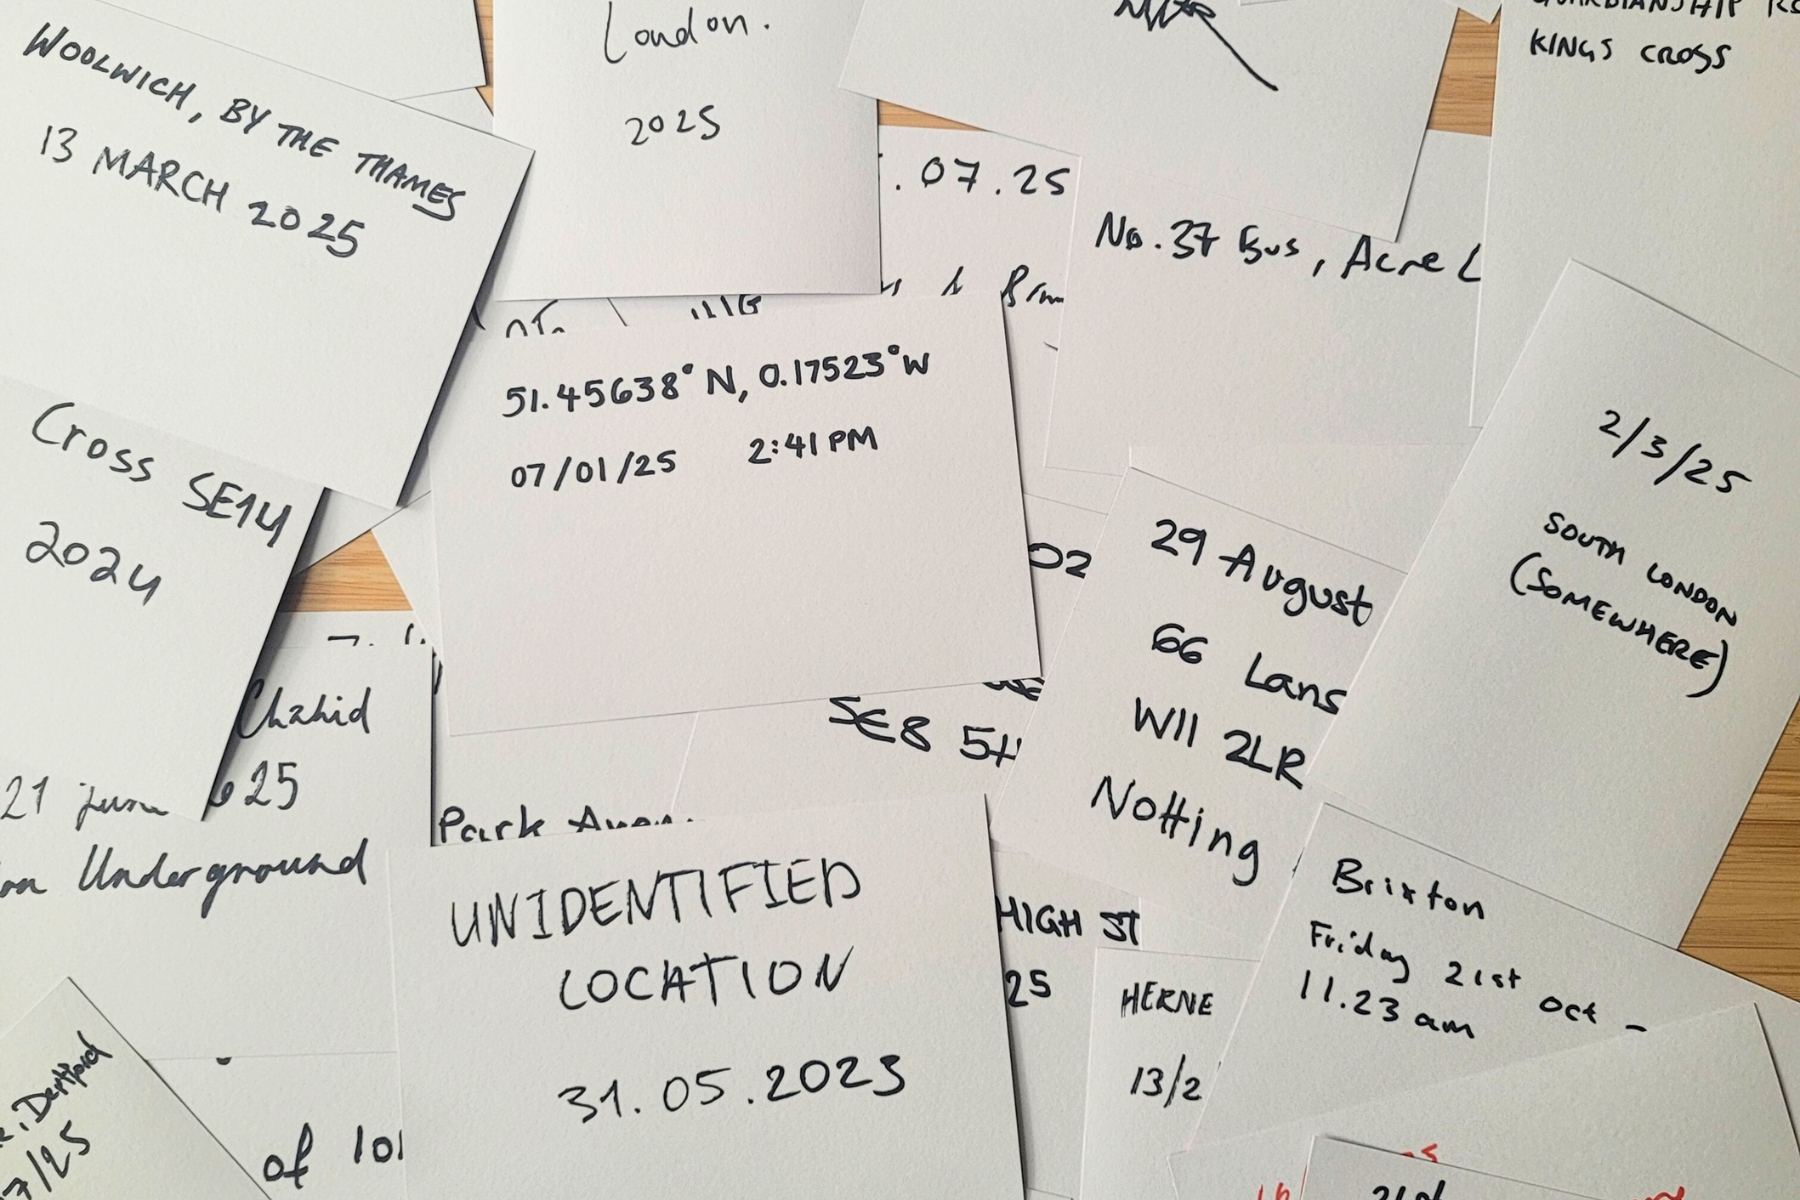 WOOLWICH, BY THE THAMES
13 MARCH 2025
London.
2025
KINGS CROSS
. 07.25
No. 37 Bus, Acre L
51.45638° N, 0.17523° W
07/01/25 2:41 PM
Cross SE14
2024
2/3/25
SOUTH LONDON
(SOMEWHERE)
02
29 August
66 Lans
W11 2LR
Notting
Chahid
21 june 25
Underground
SE8 5H
Park
UNIDENTIFIED
LOCATION
31.05.2023
HIGH ST
25
HERNE
13/2
Brixton
Friday 21st Oct -
11.23 am
, Dartford
7/25
of lo
21st